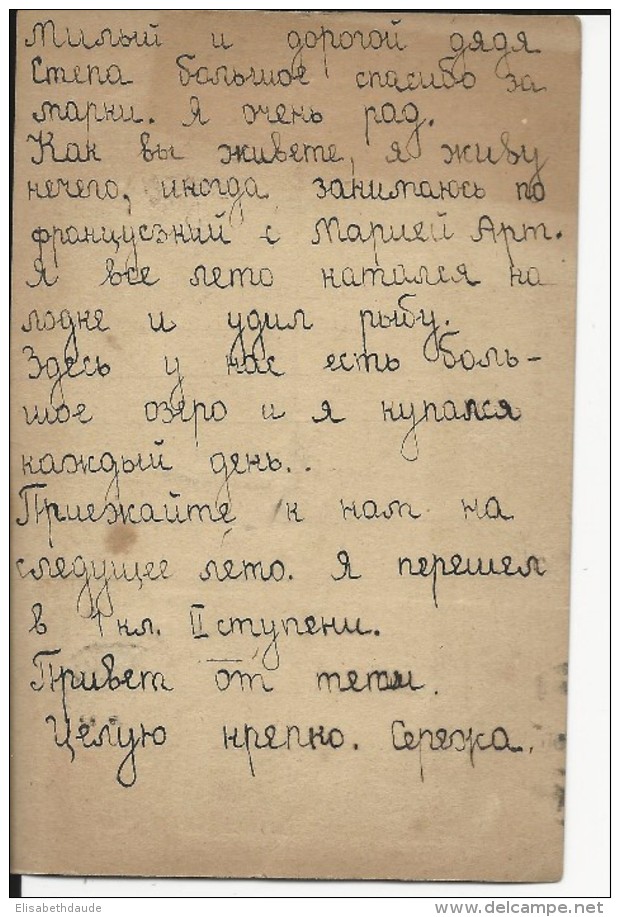 Милый и дорогой дядя
Степа большое спасибо за
марки. Я очень рад.
Как вы живете, я живу
нечего, иногда занимаюсь по
французский с Марией Арт.
Я все лето катался на
лодке и удил рыбу.
Здесь у нас есть боль-
шое озеро и я купался
каждый день..
Приежайте к нам на
следущее лето. Я перешел
в 1 кл. II ступени.
Привет от тети.
Целую крепко. Сережа.
Elisabethdaude
delcampe.net